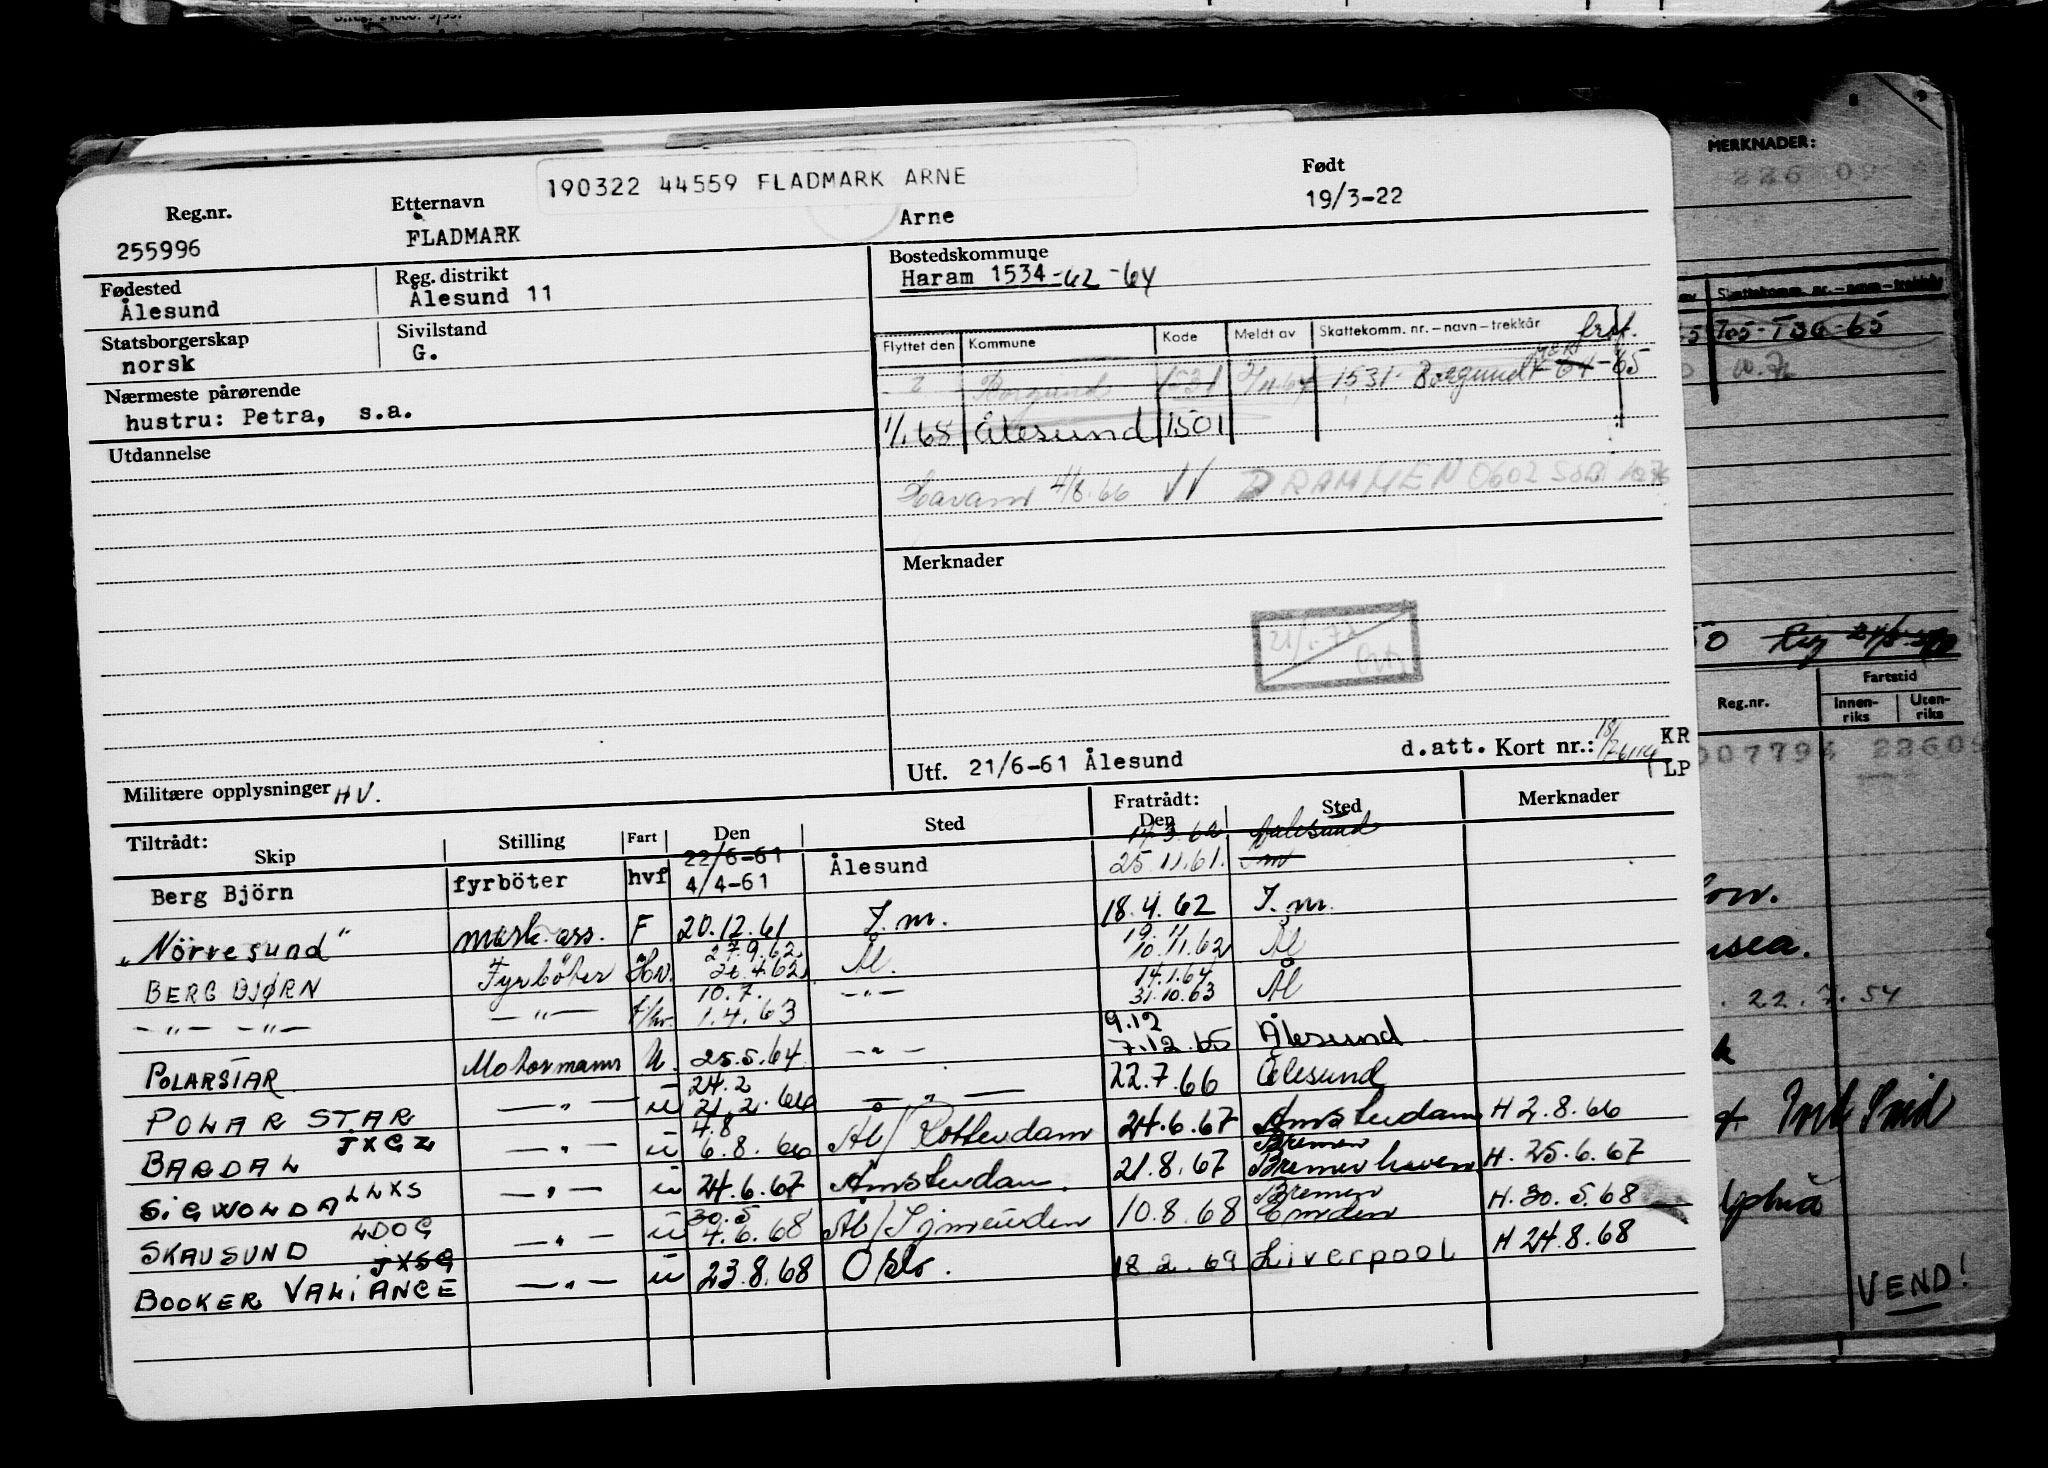 190322 44559 FLADMARK ARNE
Reg.nr. Etternavn Født
255996 FLADMARK Arne 19/3-22
Fødested Reg. distrikt Bostedskommune
Ålesund Ålesund 11 Haram 1534-62-64
Statsborgerskap Sivilstand
norsk G.
Flyttet den Kommune Kode Meldt av Skattekomm. nr. – navn – trekkår
Borgund 1531 1531- Borgund -64-65
Nærmeste pårørende
hustru: Petra, s.a.
1/1 68 Ålesund 1501
Utdannelse
Haram 4/8.66 DRAMMEN 0602
Merknader
Utf. 21/6-61 Ålesund d.att. Kort nr.: KR
LP
Militære opplysninger HV.
Tiltrådt: Fratrådt:
Skip Stilling Fart Den Sted Den Sted Merknader
22/6-61 14.3.62 Aalesund
Berg Björn fyrböter hvf 4/4-61 Ålesund 25.11.61.
"Nörvesund" mask. ass. F 20.12.61 J.m. 18.4.62 J.m.
27.9.62 19.11
BERG BJØRN Fyrböter Hv. 26.4.62 Ål. 10.11.62 Ål
10.7. 14.1.64
-"- -"- -"- f/hv. 1.4.63 -"- 31.10.63 Ål
9.12
POLARSTAR Motormann U. 25.5.64 -"- 7.12.65 Ålesund
24.2
POLAR STAR -"- u 21.2.66 -"- 22.7.66 Ålesund
JXGZ 4.8
BARDAL -"- u 6.8.66 Ål/Rotterdam 24.6.67 Amsterdam H 2.8.66
Bremen
SIGWONDA LLXS -"- u 24.6.67 Amsterdam. 21.8.67 Bremerhaven H. 25.6.67
30.5 Bremen
SKAUSUND LDOG -"- u 4.6.68 Ål/Ijmeuden 10.8.68 Emden H. 30.5.68
JXSG
BOOKER VALIANCE -"- u 23.8.68 Oslo. 18.2.69 Liverpool H 24.8.68
MERKNADER:
Skattekomm. nr. – navn – trekkår
Fartstid
Reg.nr. Innen-riks Uten-riks
22.7.54
VEND!